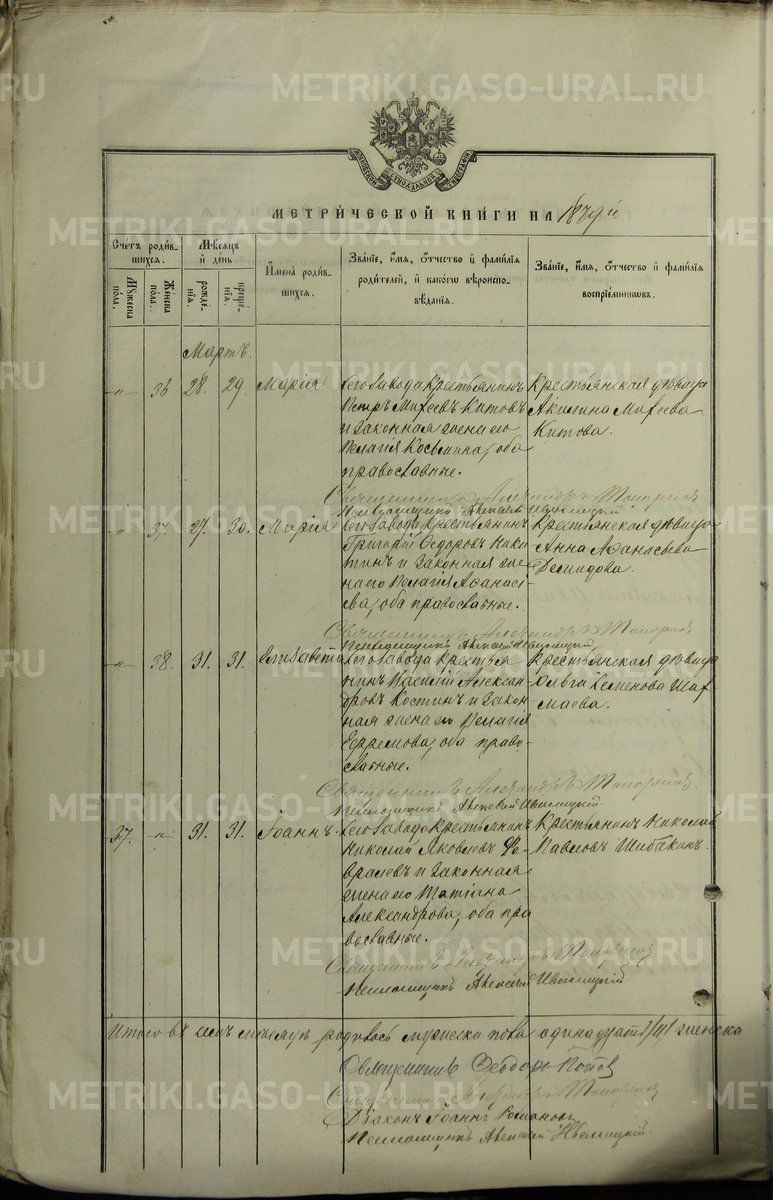 METRIKI.GASO-URAL.RU
МЕТРИ́ЧЕСКОЙ КНИ́ГИ НА 1879й
Счетъ роди́в-
шихся.
Мѣ́сяцъ
и́ де́нь
И҆мена̀ роди́в-
шихся.
Зва́нїе, и҆́мя, ѻ҆́тчество и҆ фами́лїя
роди́телей, и҆ како́гѡ вѣроиспо-
вѣ́данїя.
Зва́нїе, и҆́мя, ѻ҆́тчество и҆ фами́лїя
воспрїе́мниковъ.
Му́жеска
по́ла.
Же́нска
по́ла.
рожде́-
нїя.
креще́-
нїя.
Мартъ.
„ 36 28. 29. Марія
Сего завода крестьянинъ
Петръ Михеевъ Китовъ
и законная жена его
Пелагія Косьмина, оба
православные.
Крестьянская дѣвица
Акилина Михеева
Китова.
Священникъ Александръ Топорков
Псаломщикъ Алексѣй
„ 37. 27. 30. Марія
Сего завода крестьянинъ
Григорій Ѳедоровъ Ники
тинъ и законная же
на его Пелагія Аѳанась
ева, оба православные.
Крестьянская дѣвица
Анна Аѳанасьева
Демидова.
Священникъ Александръ Топорков
Псаломщикъ Алексѣй
„ 38. 31. 31. Елисавета
Сего завода крестья
нинъ Василій Алексан
дровъ Костинъ и закон
ная жена его Пелагія
Ефремова, оба право-
славные.
Крестьянская дѣвица
Ольга Семенова Шар
маева.
Священникъ Александръ Топорков
Псаломщикъ Алексѣй
37. „ 31. 31. Іоаннъ.
Сего завода крестьянинъ
Николай Яковлевъ Фе-
вралевъ и законная
жена его Татіана
Александрова, оба пра
вославные.
Крестьянинъ Николай
Павловъ Шибакинъ.
Священникъ Александръ Топорков
Псаломщикъ Алексѣй
Итого въ семъ мѣсяцѣ родилось мужеска пола одинадцать /11/ женска
Священникъ Ѳеодоръ Попов
Священникъ Александръ Топорков
Діаконъ Іоаннъ Романовъ
Псаломщикъ Алексѣй